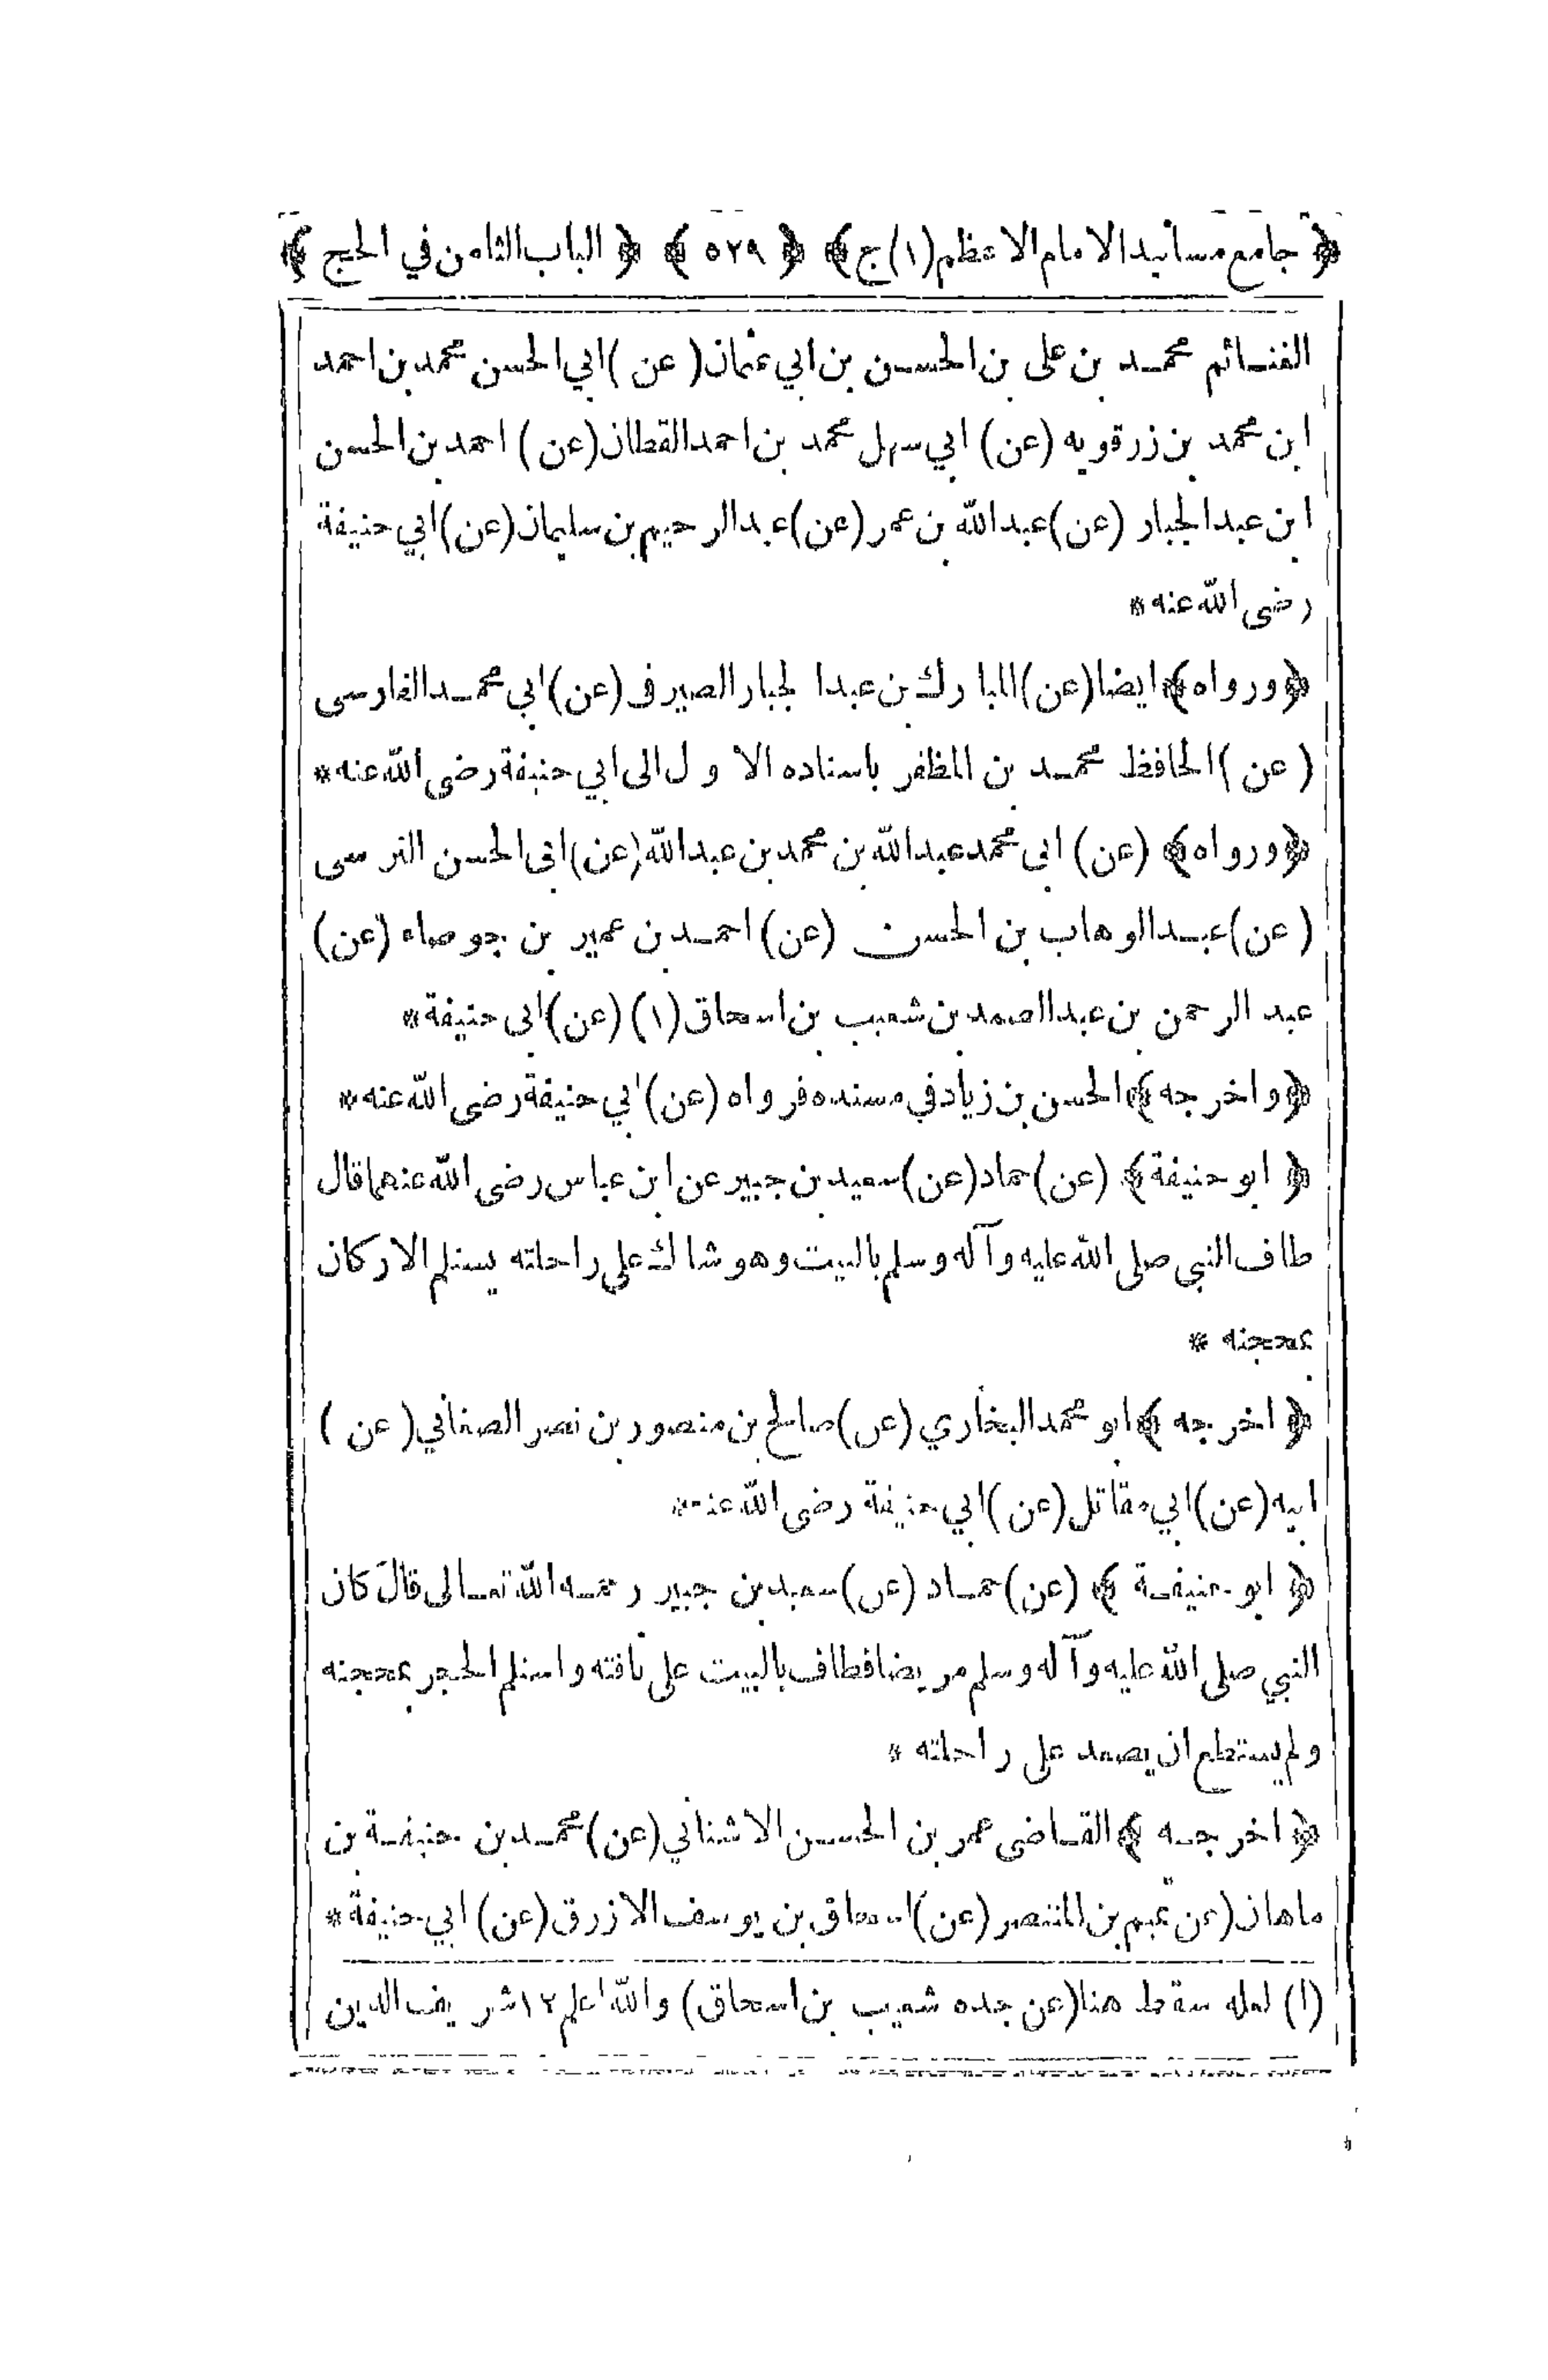 ﴿ جامع مسانيد الامام الاعظم (١) ج ﴾ ﴿ ٥٢٩ ﴾ ﴿ الباب الثامن في الحج ﴾
الغنائم محمد بن على بن الحسن بن ابي عثمان ( عن ) ابي الحسن محمد بن احمد
ابن محمد بن زرقويه (عن) ابي سهل محمد بن احمد القطان (عن) احمد بن الحسن
ابن عبد الجبار (عن) عبد الله بن عمر (عن) عبد الرحيم بن سليمان (عن) ابي حنيفة
رضى الله عنه *
﴿ ورواه ﴾ ايضا (عن) المبارك بن عبد الجبار الصير فى (عن) ابي محمد الفارسى
( عن ) الحافظ محمد بن المظفر باسناده الاول الى ابي حنيفة رضى الله عنه *
﴿ ورواه ﴾ (عن) ابى محمد عبد الله بن محمد بن عبد الله (عن) ابى الحسن النرسى
( عن ) عبد الوهاب بن الحسن (عن) احمد بن عمير بن جوصاء (عن)
عبد الرحمن بن عبد الصمد بن شعيب بن اسحاق (١) (عن) ابى حنيفة *
﴿ واخرجه ﴾ الحسن بن زياد في مسنده فرواه (عن) ابي حنيفة رضى الله عنه *
﴿ ابو حنيفة ﴾ (عن) حماد (عن) سعيد بن جبير عن ابن عباس رضى الله عنهما قال
طاف النبي صلى الله عليه وآله وسلم بالبيت وهو شاك على راحلته يستلم الاركان
بمحجنه *
﴿ اخرجه ﴾ ابو محمد البخاري (عن) صالح بن منصور بن نصر الصغاني ( عن )
ابيه (عن) ابي مقاتل (عن) ابي حنيفة رضى الله عنه *
﴿ ابو حنيفة ﴾ (عن) حماد (عن) سعيد بن جبير رحمه الله تعالى قال كان
النبي صلى الله عليه وآله وسلم مريضا فطاف بالبيت على ناقته واستلم الحجر بمحجنه
ولم يستطع ان يصعد على راحلته *
﴿ اخرجه ﴾ القاضى عمر بن الحسن الاشناني (عن) محمد بن حنيفة بن
ماهان (عن تميم بن المنتصر (عن) اسحاق بن يوسف الازرق (عن) ابي حنيفة *
(١) لعله سقط هنا (عن جده شعيب بن اسحاق) والله اعلم ١٢ شريف الدين